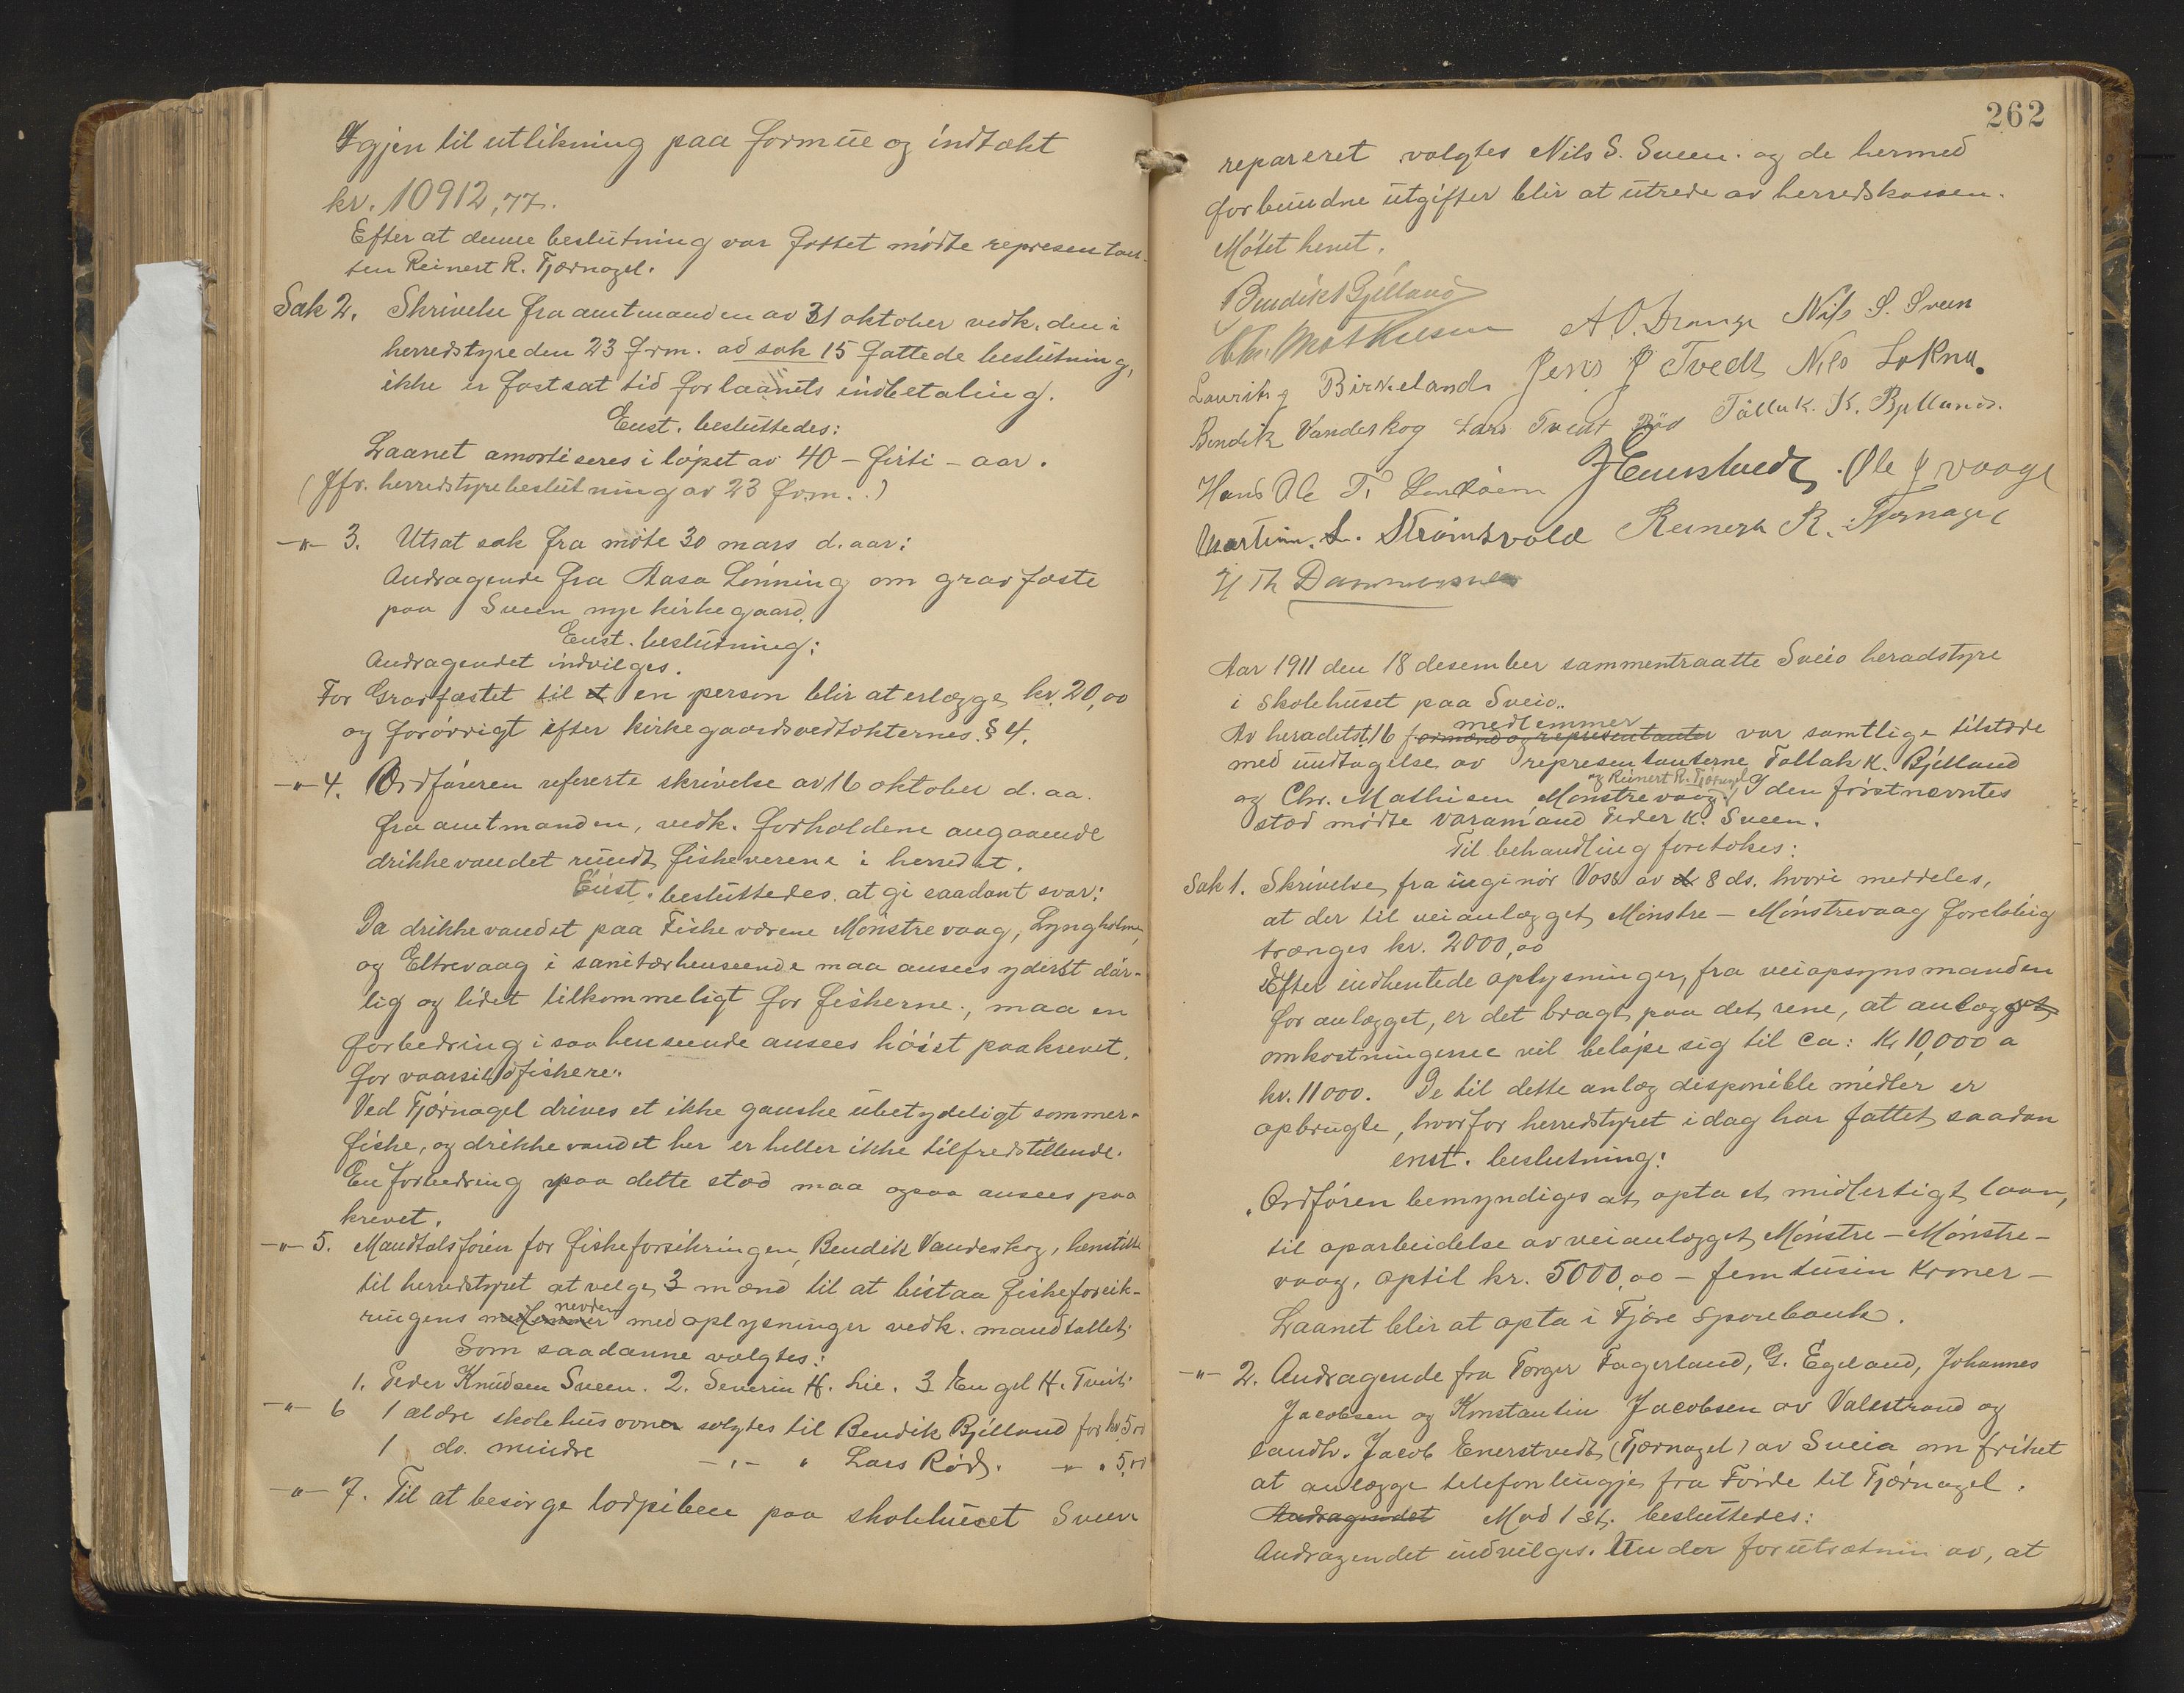 Igjen til utlikning paa formue og indtækt
kr. 10912,77.
Efter at denne beslutning var fattet mødte representan-
ten Reinert R. Tjernagel.
Sak 2. Skrivelse fra amtmanden av 31 oktober vedk. den i
herredstyre den 23 f.m. ad sak 15 fattede beslutning,
ikke er fastsat tid for laanets indbetaling.
Enst. besluttedes:
Laanet amortiseres i løpet av 40 - firti - aar.
(Jfr. herredstyrebeslutning av 23 f.m..)
-"- 3. Utsat sak fra møte 30 mars d. aar:
Andragende fra Aasa Lønning om gravfæste
paa Sveen nye kirkegaard.
Enst. beslutning:
Andragendet indvilges.
For Gravfæstet til en person blir at erlægge kr. 20,00
og forøvrigt efter kirkegaardsvedtækternes § 4.
-"- 4. Ordføreren refererte skrivelse av 16 oktober d. aa.
fra amtmanden, vedk. forholdene angaaende
drikkevandet rundt fiskeverene i herredet.
Enst. besluttedes at gi saadant svar:
Da drikkevandet paa Fiskeværene Mønstrevaag, Lyngholmen,
og Eltrevaag i sanitærhenseende maa ansees yderst dår-
lig og lidet tilkommeligt for fiskerne, maa en
forbedring i saa henseende ansees høist paakrevet,
for vaarsildfiskere.
Ved Tjørnagel drives et ikke ganske ubetydeligt sommer-
fiske, og drikkevandet her er heller ikke tilfredstillende.
En forbedring paa dette sted maa ogsaa ansees paa
krevet.
-"- 5. Mandtalsfører for fiskeforsikringen, Bendik Vandeskog, henstillte
til herredstyret at velge 3 mænd til at bistaa fiskeforsik-
ringens medlemmer nevden med oplysninger vedk. mandtallet.
Som saadanne valgtes:
1. Peder Knudsen Sveen. 2. Severin H. Lie. 3 Engel H. Tveit.
-"- 6 1 ældre skolehusovner solgtes til Bendik Bjelland for kr. 5,00
1 do. mindre -"- " Lars Rød. -"- " 5,00
-"- 7. Til at besørge lodpiben paa skolehuset Sveen
262
repareret valgtes Nils S. Sveen. og de hermed
forbundne utgifter blir at utrede av herredskassen.
Møtet hevet.
Bendikt Bjelland
Chr. Mathiesen A. O. Drange Nils S. Sveen
Lauritz Birkeland Jens J Tvedt Nils Lokna.
Bendik Vandeskog Lars Tveit Röd Tallak K. Bjelland.
Hans Ole T. J Enerstvedt. Ole J Vaage
Martin. L. Strømsvold Reinert R. Tjernagel
J Th Dammesn
Aar 1911 den 18 desember sammentraatte Sveio heradstyre
i skolehuset paa Sveio..
Av heradetst. 16 formænd og representanter medlemmer var samtlige tilstæde
med undtagelse av representanterne Tallak K. Bjelland
og Chr. Mathisen Mønstrevaag og Reinert R. Tjørnagel, I den førstnevntes
sted mødte varamand Peder K. Sveen.
Til behandling foretokes:
Sak 1. Skrivelse fra ingeniør Voss av 8 ds. hvori meddeles,
at der til veianlægget Mønstre - Mønstrevaag foreløbig
trænges kr. 2000,00
Efter indhentede oplysninger, fra veiopsynsmanden
for anlægget, er det bragt paa det rene, at anlægget
omkostningerne vil beløpe sig til ca: Kr 10,000 a
kr. 11000. De til dette anlæg disponible midler er
opbrugte, hvorfor herredstyret idag har fattet saadan
enst. beslutning:
Ordføren bemyndiges at opta et midlertigt laan,
til oparbeidelse av veianlægget Mønstre - Mønstre-
vaag, optil kr. 5000,00 - femtusin Kroner -
Laanet blir at opta i Fjære sparebank.
-"- 2. Andragende fra Torger Fagerland, G. Egeland, Johannes
Jacobsen og Konstantin Jacobsen av Valestrand og
landh. Jacob Enerstvedt (Tjernagel) av Sveia om frihet
at anlægge telefonlingje fra Förde til Tjørnagel.
Andragendet Mod 1 st. besluttedes:
Andragendet indvilges. Under forutsætnin av, at